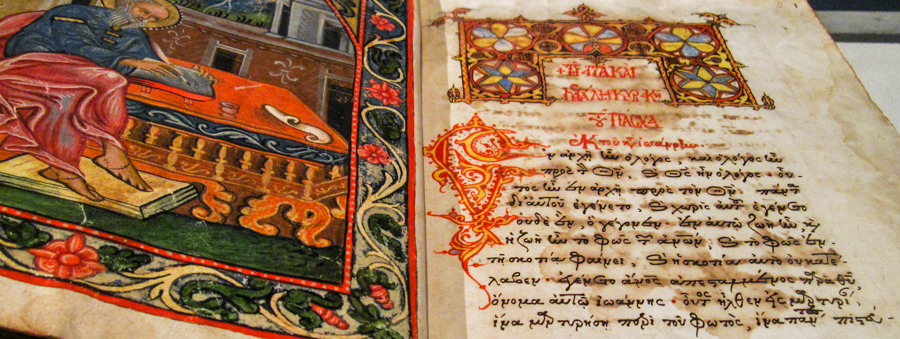 ΠΑΣΧΑ
ἐκ τοῦ κ ἰωάννην
ἐν ἀρχῇ ἦν ὁ λόγος, καὶ ὁ λόγος ἦν
πρὸς τ θν, ϗ θς ἦν ὁ λόγος· οὗ
τος ἦν ἐν ἀρχῇ πρὸς τὸν θν. πάντ
δι' αὐτοῦ ἐγένετο, ϗ χωρὶς αὐτ ἐγένετο
οὐδὲ ἕν, ὃ γέγονεν· ἐν αὐτῷ ζωὴ ἦν, ϗ
ἡ ζωὴ ἦν τὸ φῶς τ ἀνων, ϗ τὸ φῶς ἐν
τῇ σκοτίᾳ φαίνει· ϗ ἡ σκοτία αὐτὸ οὐ κατέ
λαβεν· ἐγένετο ἄνος ἀπεσταλμένος παρὰ θυ,
ὄνομα αὐτῷ ἰωάννης· οὗτος ἦλθεν εἰς μαρτυρί
ἵνα μαρτυρήσῃ περὶ τοῦ φωτὸς, ἵνα πάν πιστεύ